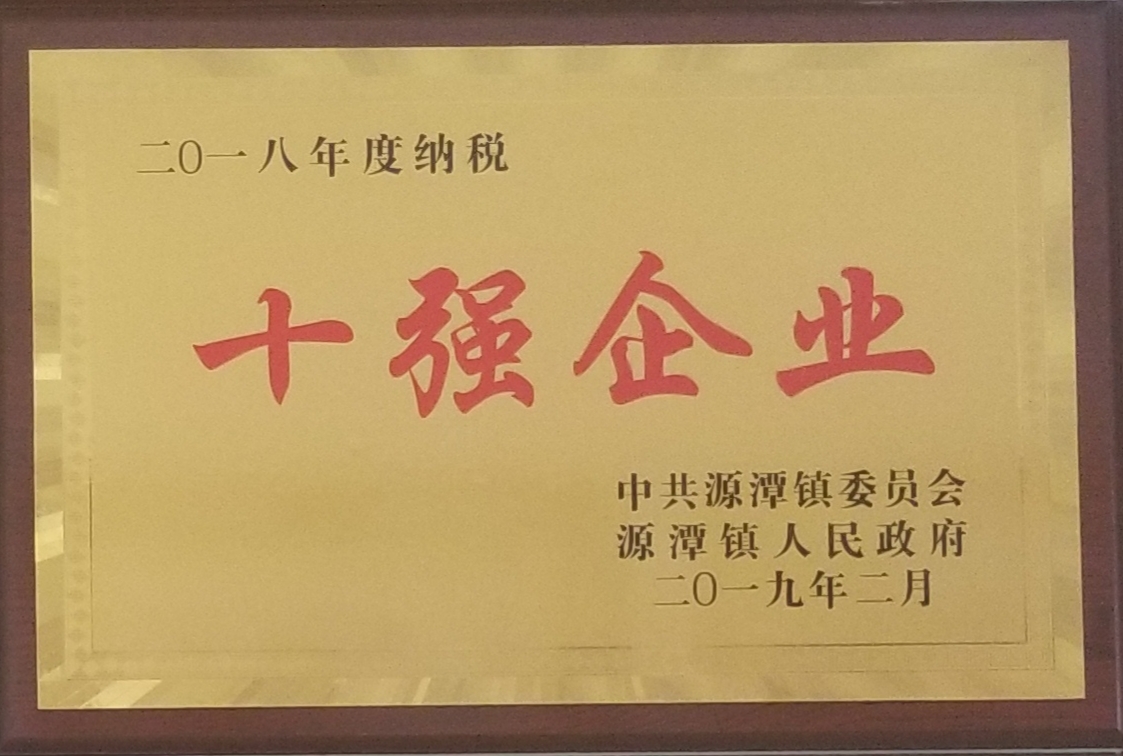 二〇一八年度纳税
十强企业
中共源潭镇委员会
源潭镇人民政府
二〇一九年二月